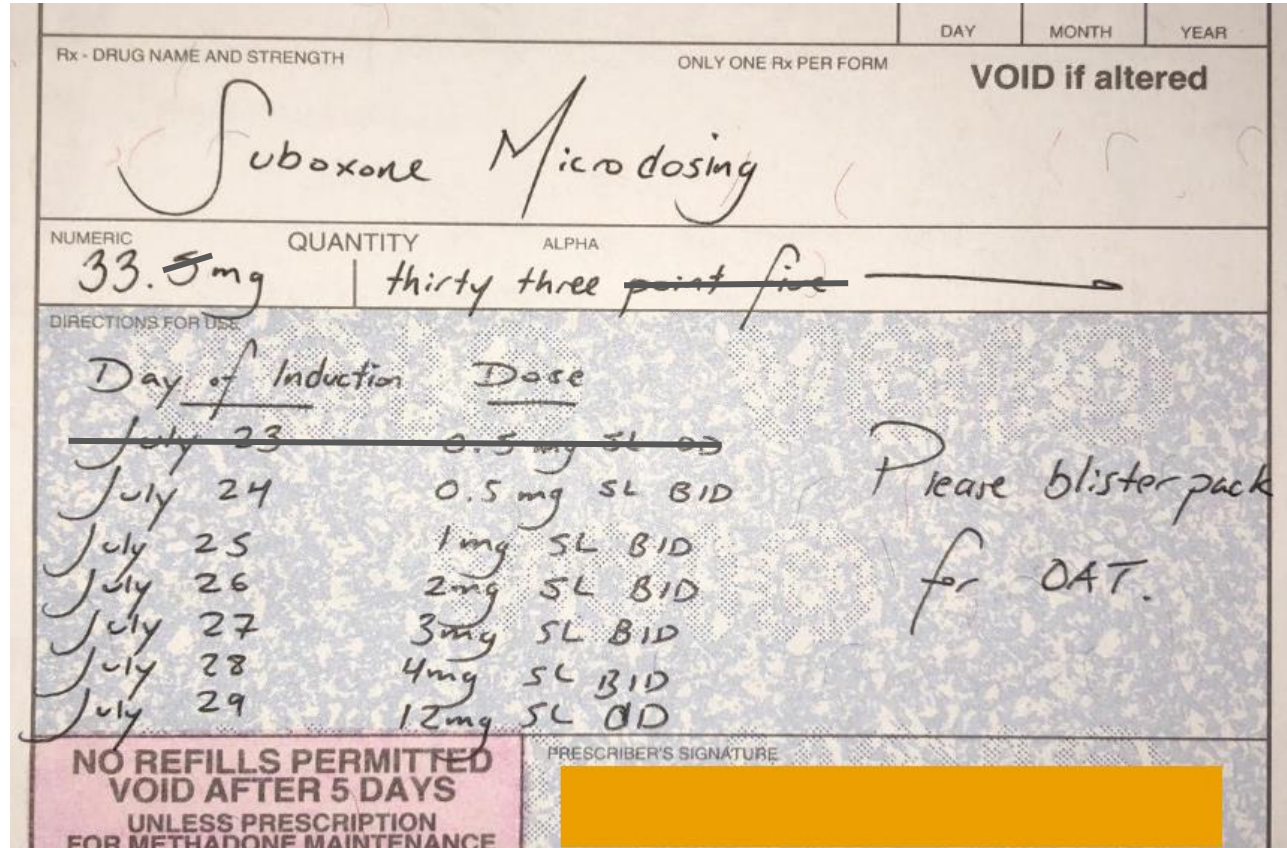 DAY MONTH YEAR
Rx - DRUG NAME AND STRENGTH ONLY ONE Rx PER FORM VOID if altered
Suboxone Microdosing
NUMERIC QUANTITY ALPHA
33.5 mg thirty three point five
DIRECTIONS FOR USE
Day of Induction Dose
July 23 0.5 mg SL OD
July 24 0.5 mg SL BID
July 25 1mg SL BID
July 26 2mg SL BID
July 27 3mg SL BID
July 28 4mg SL BID
July 29 12mg SL OD
Please blister pack
for OAT.
VOID
VOID
NO REFILLS PERMITTED
VOID AFTER 5 DAYS
UNLESS PRESCRIPTION
FOR METHADONE MAINTENANCE
PRESCRIBER'S SIGNATURE